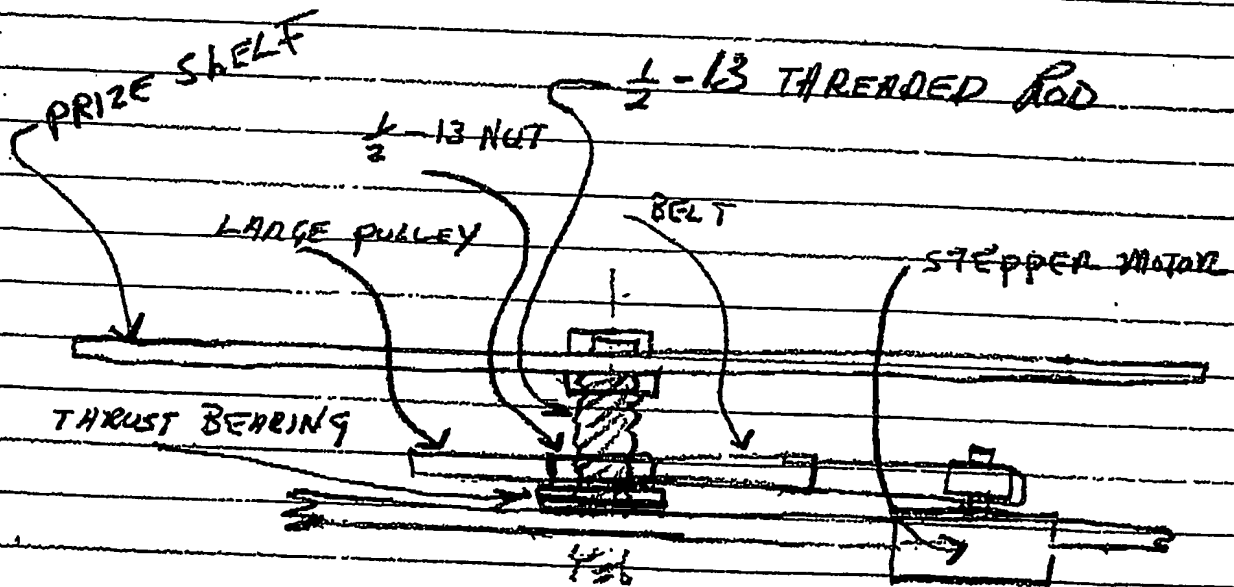 PRIZE SHELF
1/2 - 13 THREADED ROD
1/2 - 13 NUT
BELT
LARGE PULLEY
STEPPER MOTOR
THRUST BEARING